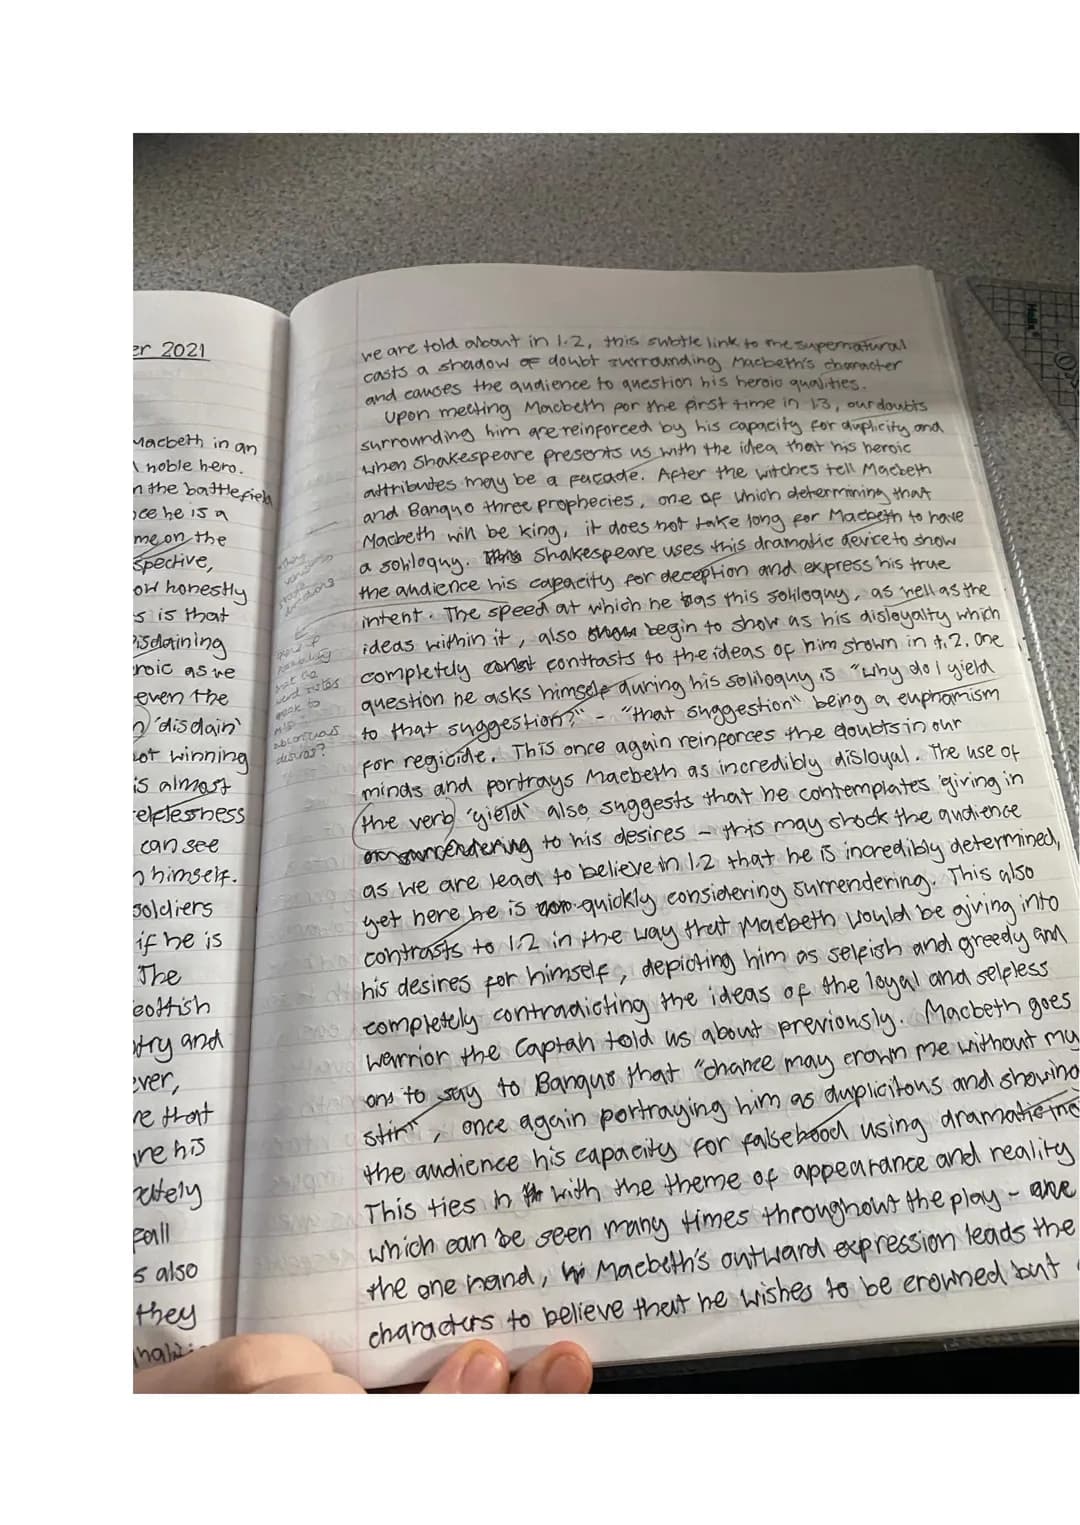 er 2021
Macbeth in an
noble hero.
n the battlefield
ce he is a
me on the
spective,
ow honestly
s is that
Disdaining
roic as we
even the
'disdain'
ot winning
is almost
elflessness
can see
himself.
soldiers
if he is
The
cottish
try and
ever,
re that
are his
ately
eall
s also
they
we are told about in 1.2, this subtle link to the supernatural
casts a shadow of doubt surrounding Macbeth's character
and causes the audience to question his heroic qualities.
Upon meeting Macbeth for the first time in 1.3, our doubts
surrounding him are reinforced by his capacity for duplicity and
when Shakespeare presents us with the idea that his heroic
attributes may be a facade. After the witches tell Macbeth
and Banquo three prophecies, one of which determining that
Macbeth will be king, it does not take long for Macbeth to have
a soliloquy. Shakespeare uses this dramatic device to show
the audience his capacity for deception and express his true
intent. The speed at which he has this soliloquy, as well as the
ideas within it, also begin to show us his disloyalty which
completely contrasts to the ideas of him shown in 1.2. One
question he asks himself during his soliloquy is "why do I yield
to that suggestion?" - "that suggestion" being a euphamism
for regicide. This once again reinforces the doubts in our
minds and portrays Macbeth as incredibly disloyal. The use of
the verb 'yield' also suggests that he contemplates giving in
or surrendering to his desires - this may shock the audience
as we are lead to believe in 1.2 that he is incredibly determined,
yet here he is quickly considering surrendering. This also
contrasts to 1.2 in the way that Macbeth would be giving into
his desires for himself, depicting him as selfish and greedy and
completely contradicting the ideas of the loyal and selfless
warrior the Captain told us about previously. Macbeth goes
on to say to Banquo that "chance may crown me without my
stir", once again portraying him as duplicitous and showing
the audience his capacity for falsehood using dramatic
This ties in with the theme of appearance and reality
which can be seen many times throughout the play - 
the one hand, Macbeth's outward expression leads the
characters to believe that he wishes to be crowned but
Helix